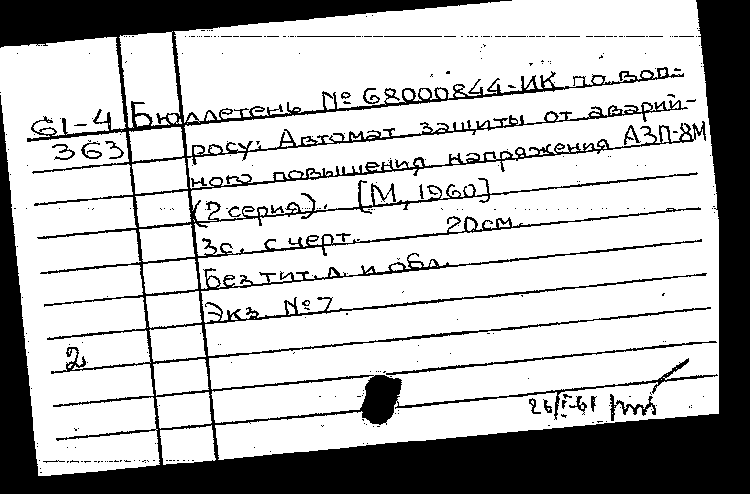 61-4 Бюллетень № 68000844-ИК по воп-
363 росу: Автомат защиты от аварий-
ного повышения напряжения АЗП-8М
(2 серия). [М, 1960]
3с. с черт. 20см.
Без тит. л. и обл.
Экз. №7
2
26/I-61